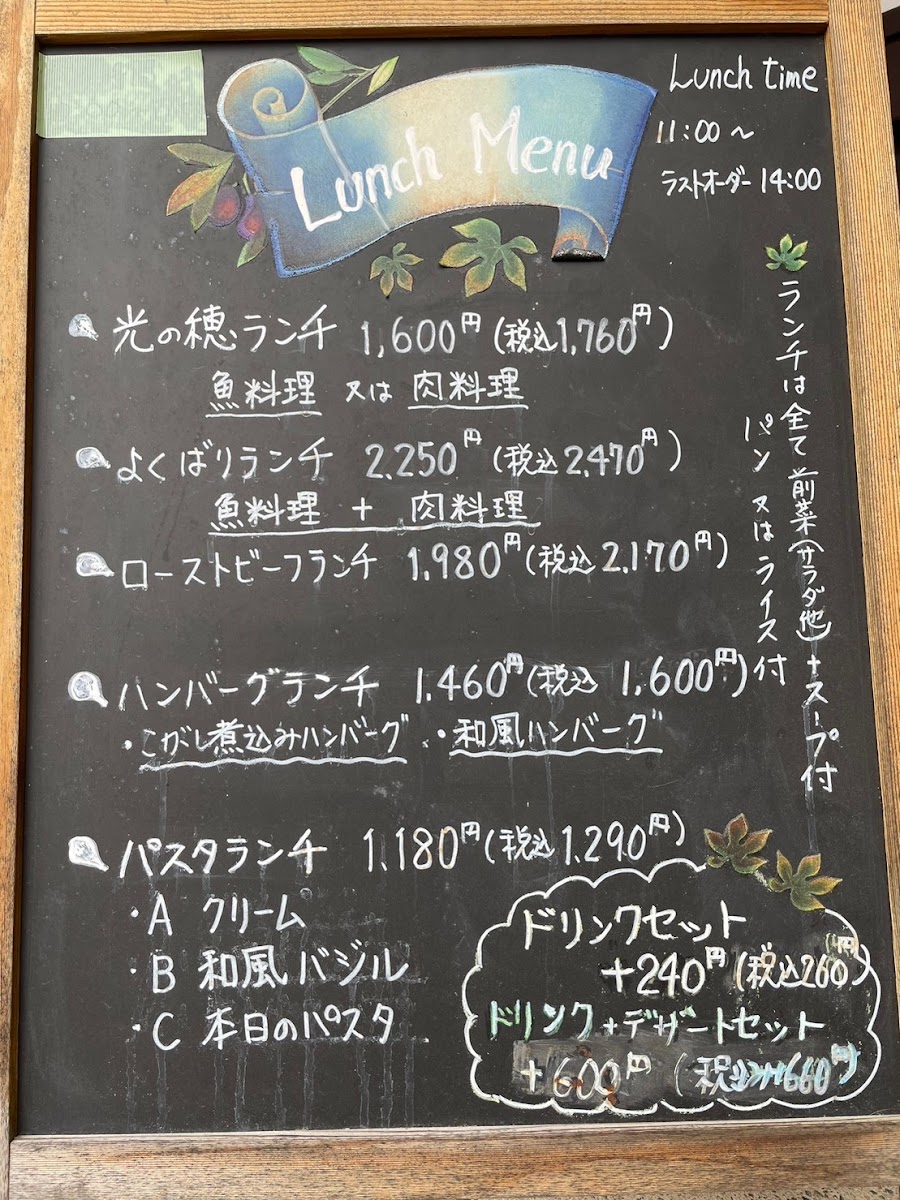 Lunch Menu
Lunch time
11:00～
ラストオーダー 14:00
光の穂ランチ 1,600円(税込1,760円)
魚料理 又は 肉料理
よくばりランチ 2.250円(税込2.470円)
魚料理 + 肉料理
ローストビーフランチ 1.980円(税込2.170円)
ハンバーグランチ 1.460円(税込 1,600円)
・こがし煮込みハンバーグ ・和風ハンバーグ
パスタランチ 1.180円(税込1.290円)
・A クリーム
・B 和風バジル
・C 本日のパスタ
ランチは全て前菜(サラダ他)+スープ付
パン又はライス付
ドリンクセット
+240円(税込260円)
ドリンク+デザートセット
+600円(税込660円)